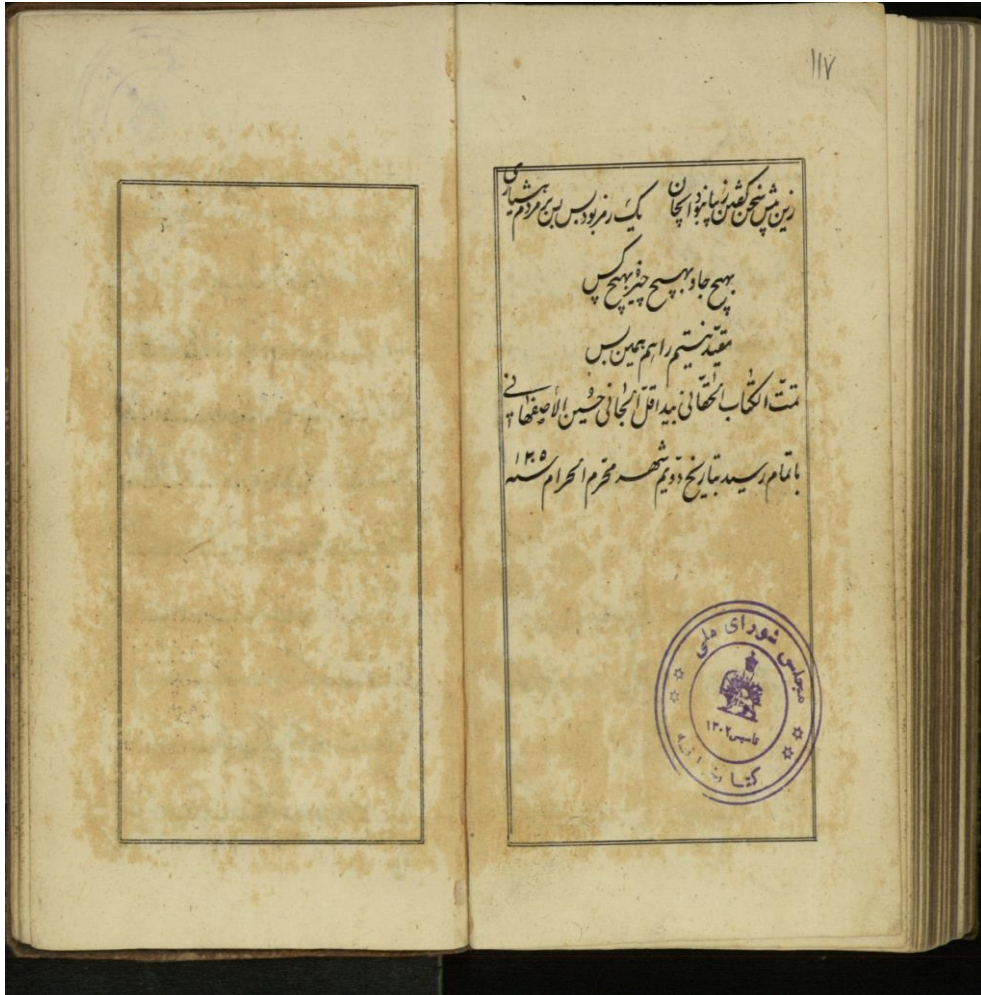 ۱۱۷
زین بیش سخن گفتن زیبا نبود ای جان یک رمز بود بس بس بر مردم هشیاری
بهیچ جا و بهیچ چیز و بهیچ کس
مقید نیستم را هم همین بس
تمت الکتاب الحقانی بید اقل الجانی حسین الأصفهانی
باتمام رسید بتاریخ دویم شهر محرم الحرام سنه ۱۳۰۵
مجلس شورای ملی
تاسیس ۱۳۰۲
کتابخانه